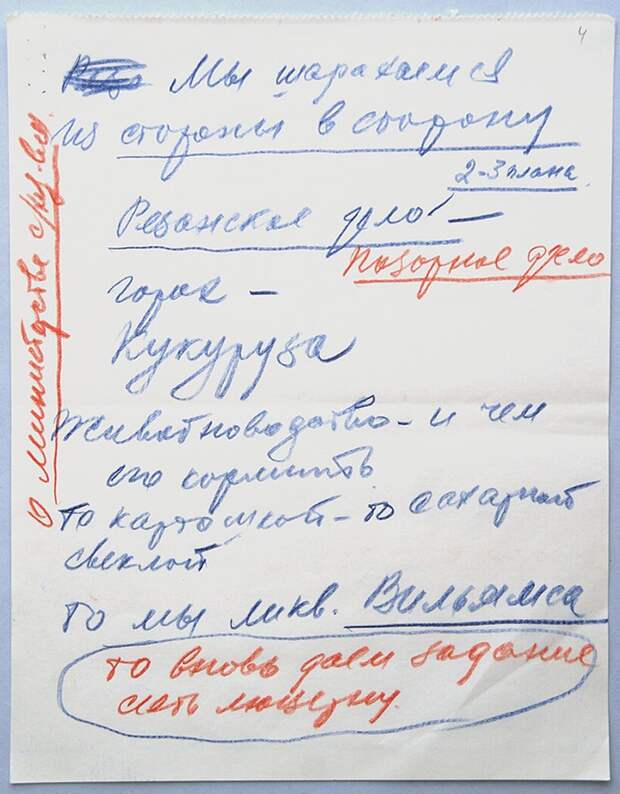 4
Мы шарахаемся
из стороны в сторону
2-3 плана
Резанское дело! —
Позорное дело
горох —
Кукуруза
Животноводство - и чем
его кормить
То картошкой - то сахарной
свеклой
То мы ликв. Вильямса
то вновь даем задание
сеять люцерну.
О министерстве с/хоз-ва